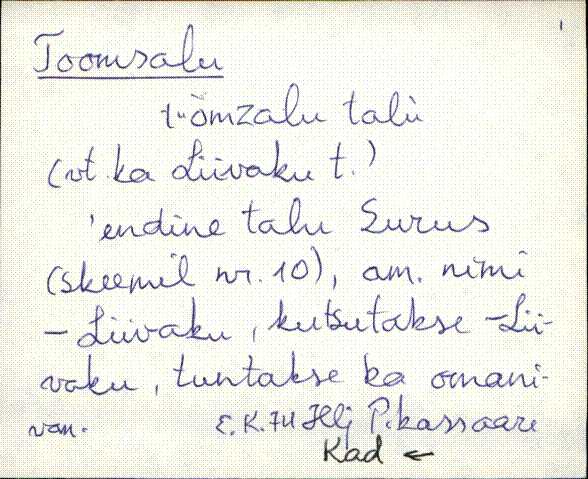 Toomsalu
t·ōmzalu talù
(vt. ka Liivaku t.)
'endine talu Surus
(skeemil nr. 10), am. nimi
- Liivaku, kutsutakse - Lii-
vaku, tuntakse ka omani-
E. K. 74 Pikassaare
Kad ←